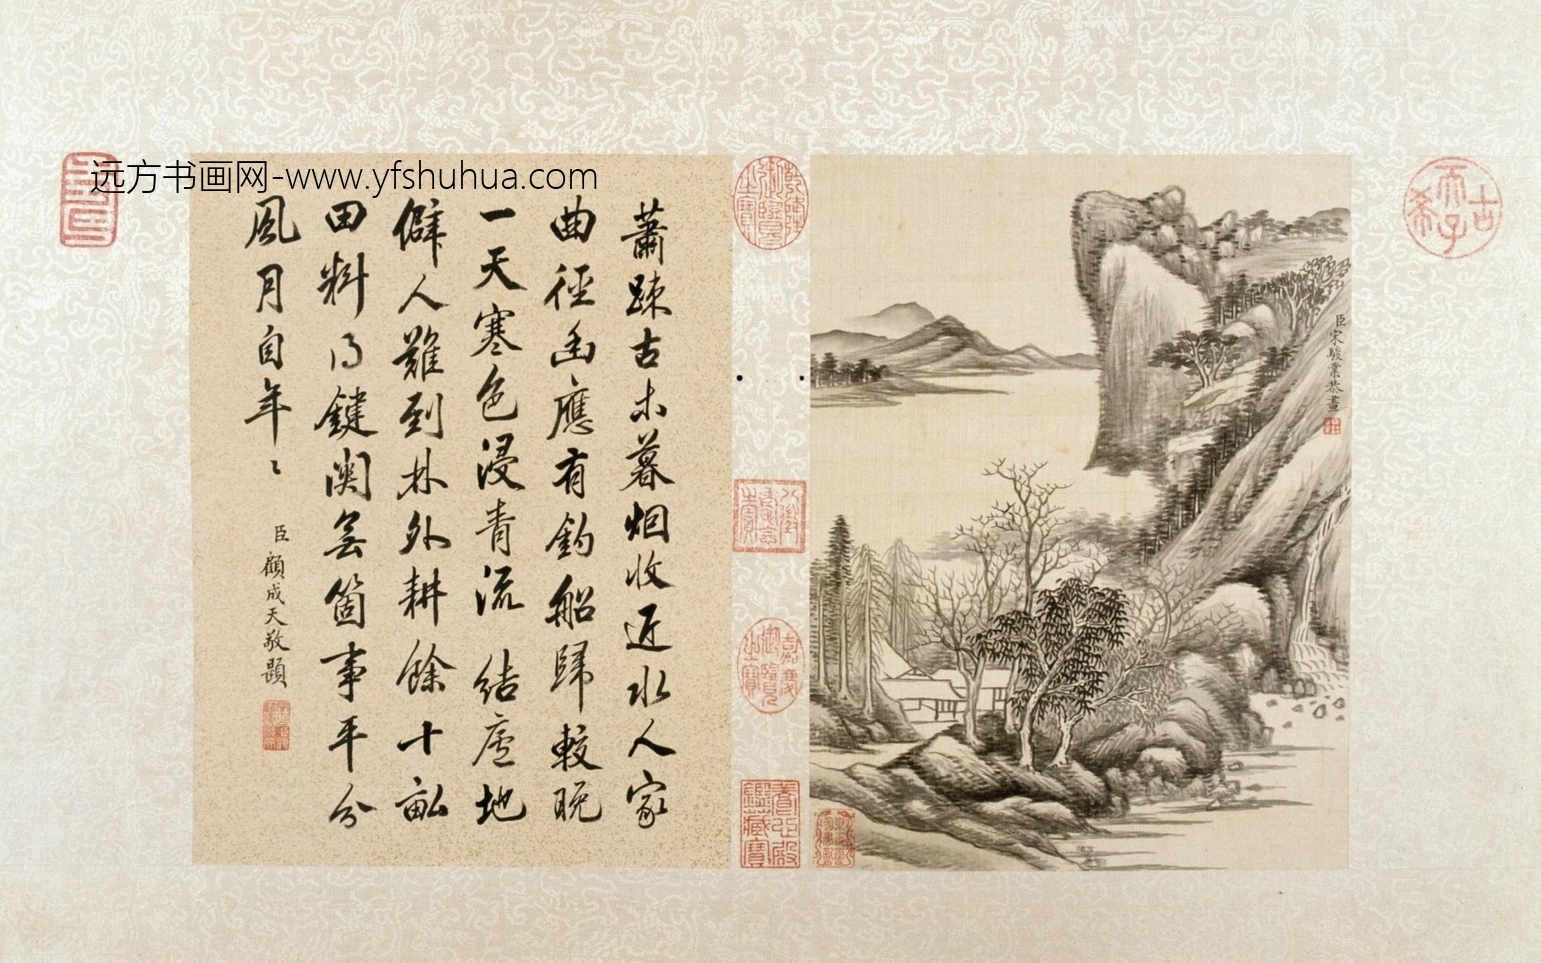 远方书画网-www.yfshuhua.com
蕭踈古木暮烟收近水人家
曲徑幽應有釣船歸較晚
一天寒色浸青流 結廬地
僻人難到林外耕餘十畝
田料得鍵関無箇事平分
風月自年〻
臣顧成天敬題
臣宋駿業恭畫
古希天子
壽
嘉慶御覽之寶
養心殿鑑藏寶